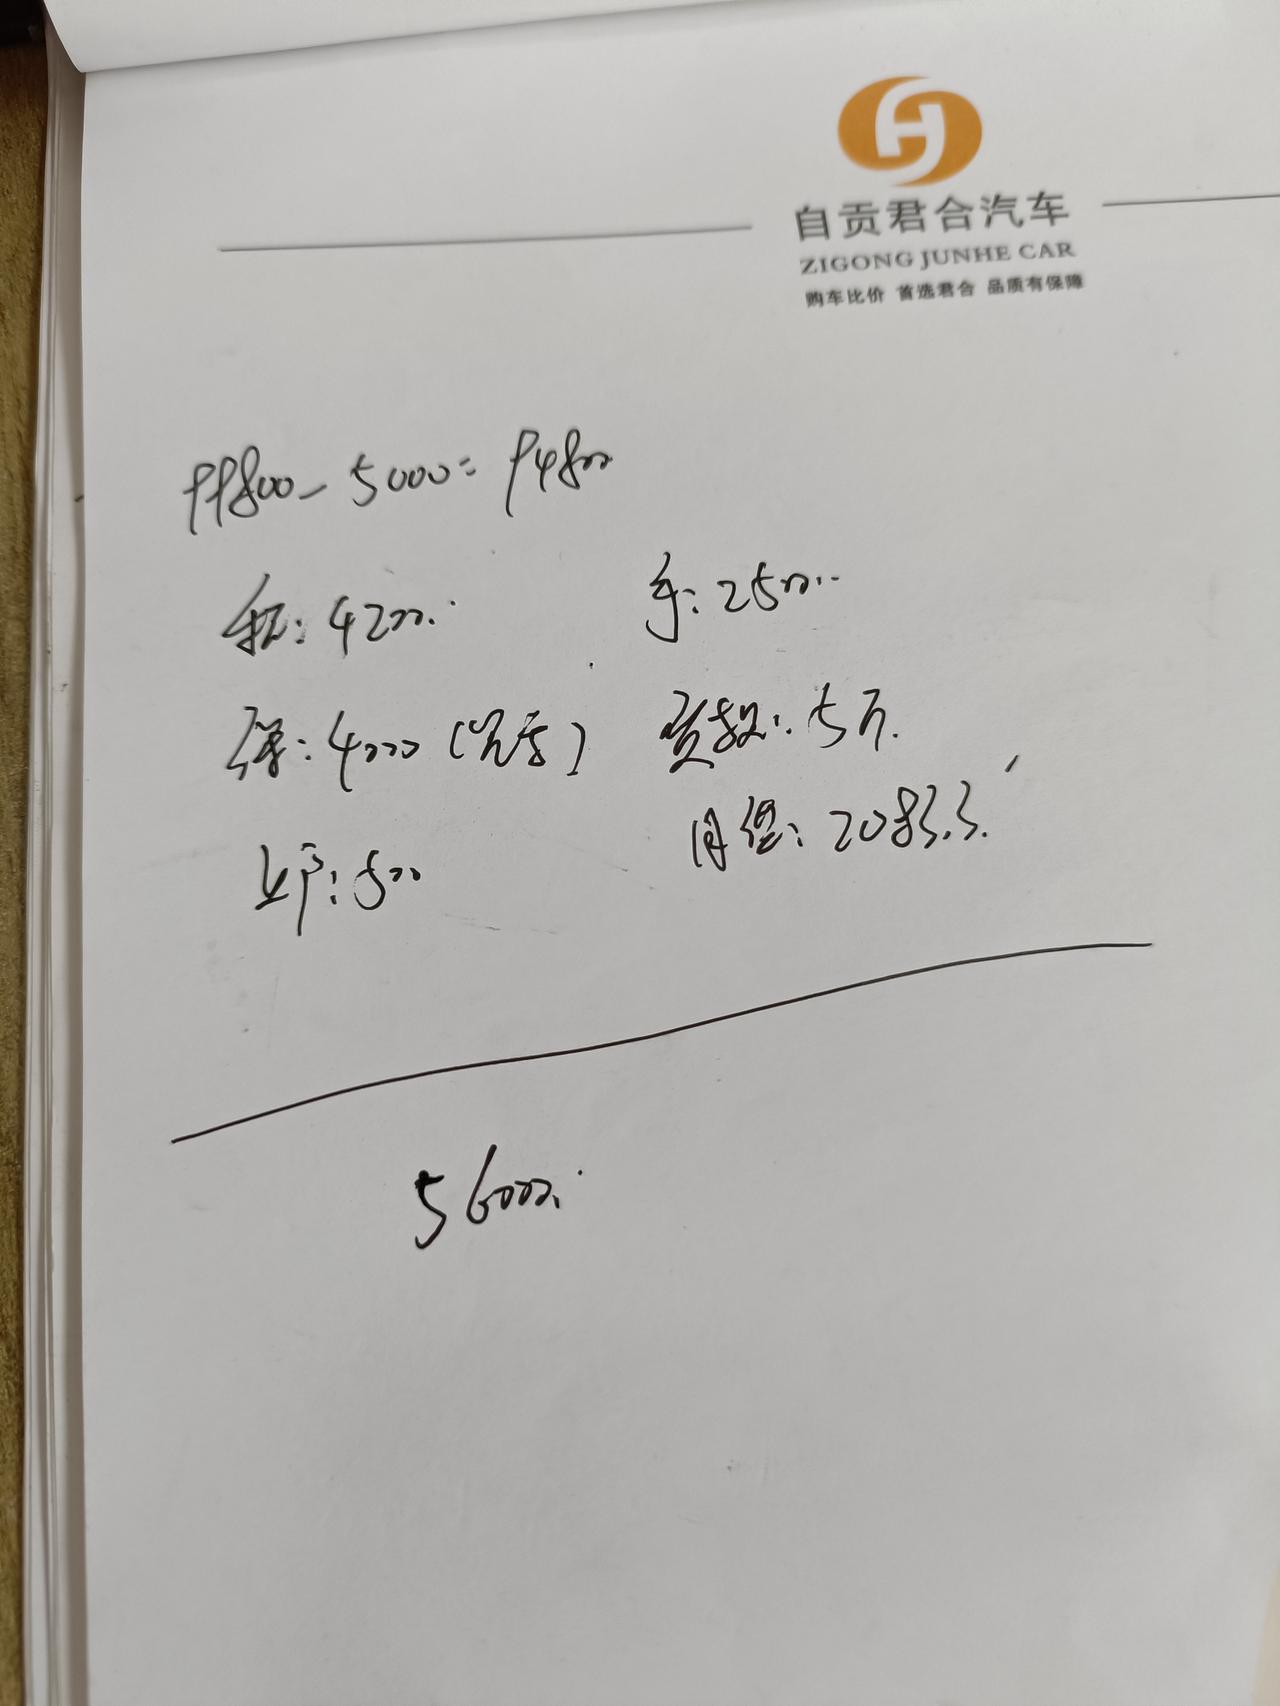 自贡君合汽车
ZIGONG JUNHE CAR
购车比价 首选君合 品质有保障
99800-5000=94800
税:4200.
手:2500..
保:4000
贷款:5万.
月供:2083.3.
上户:500
56000.